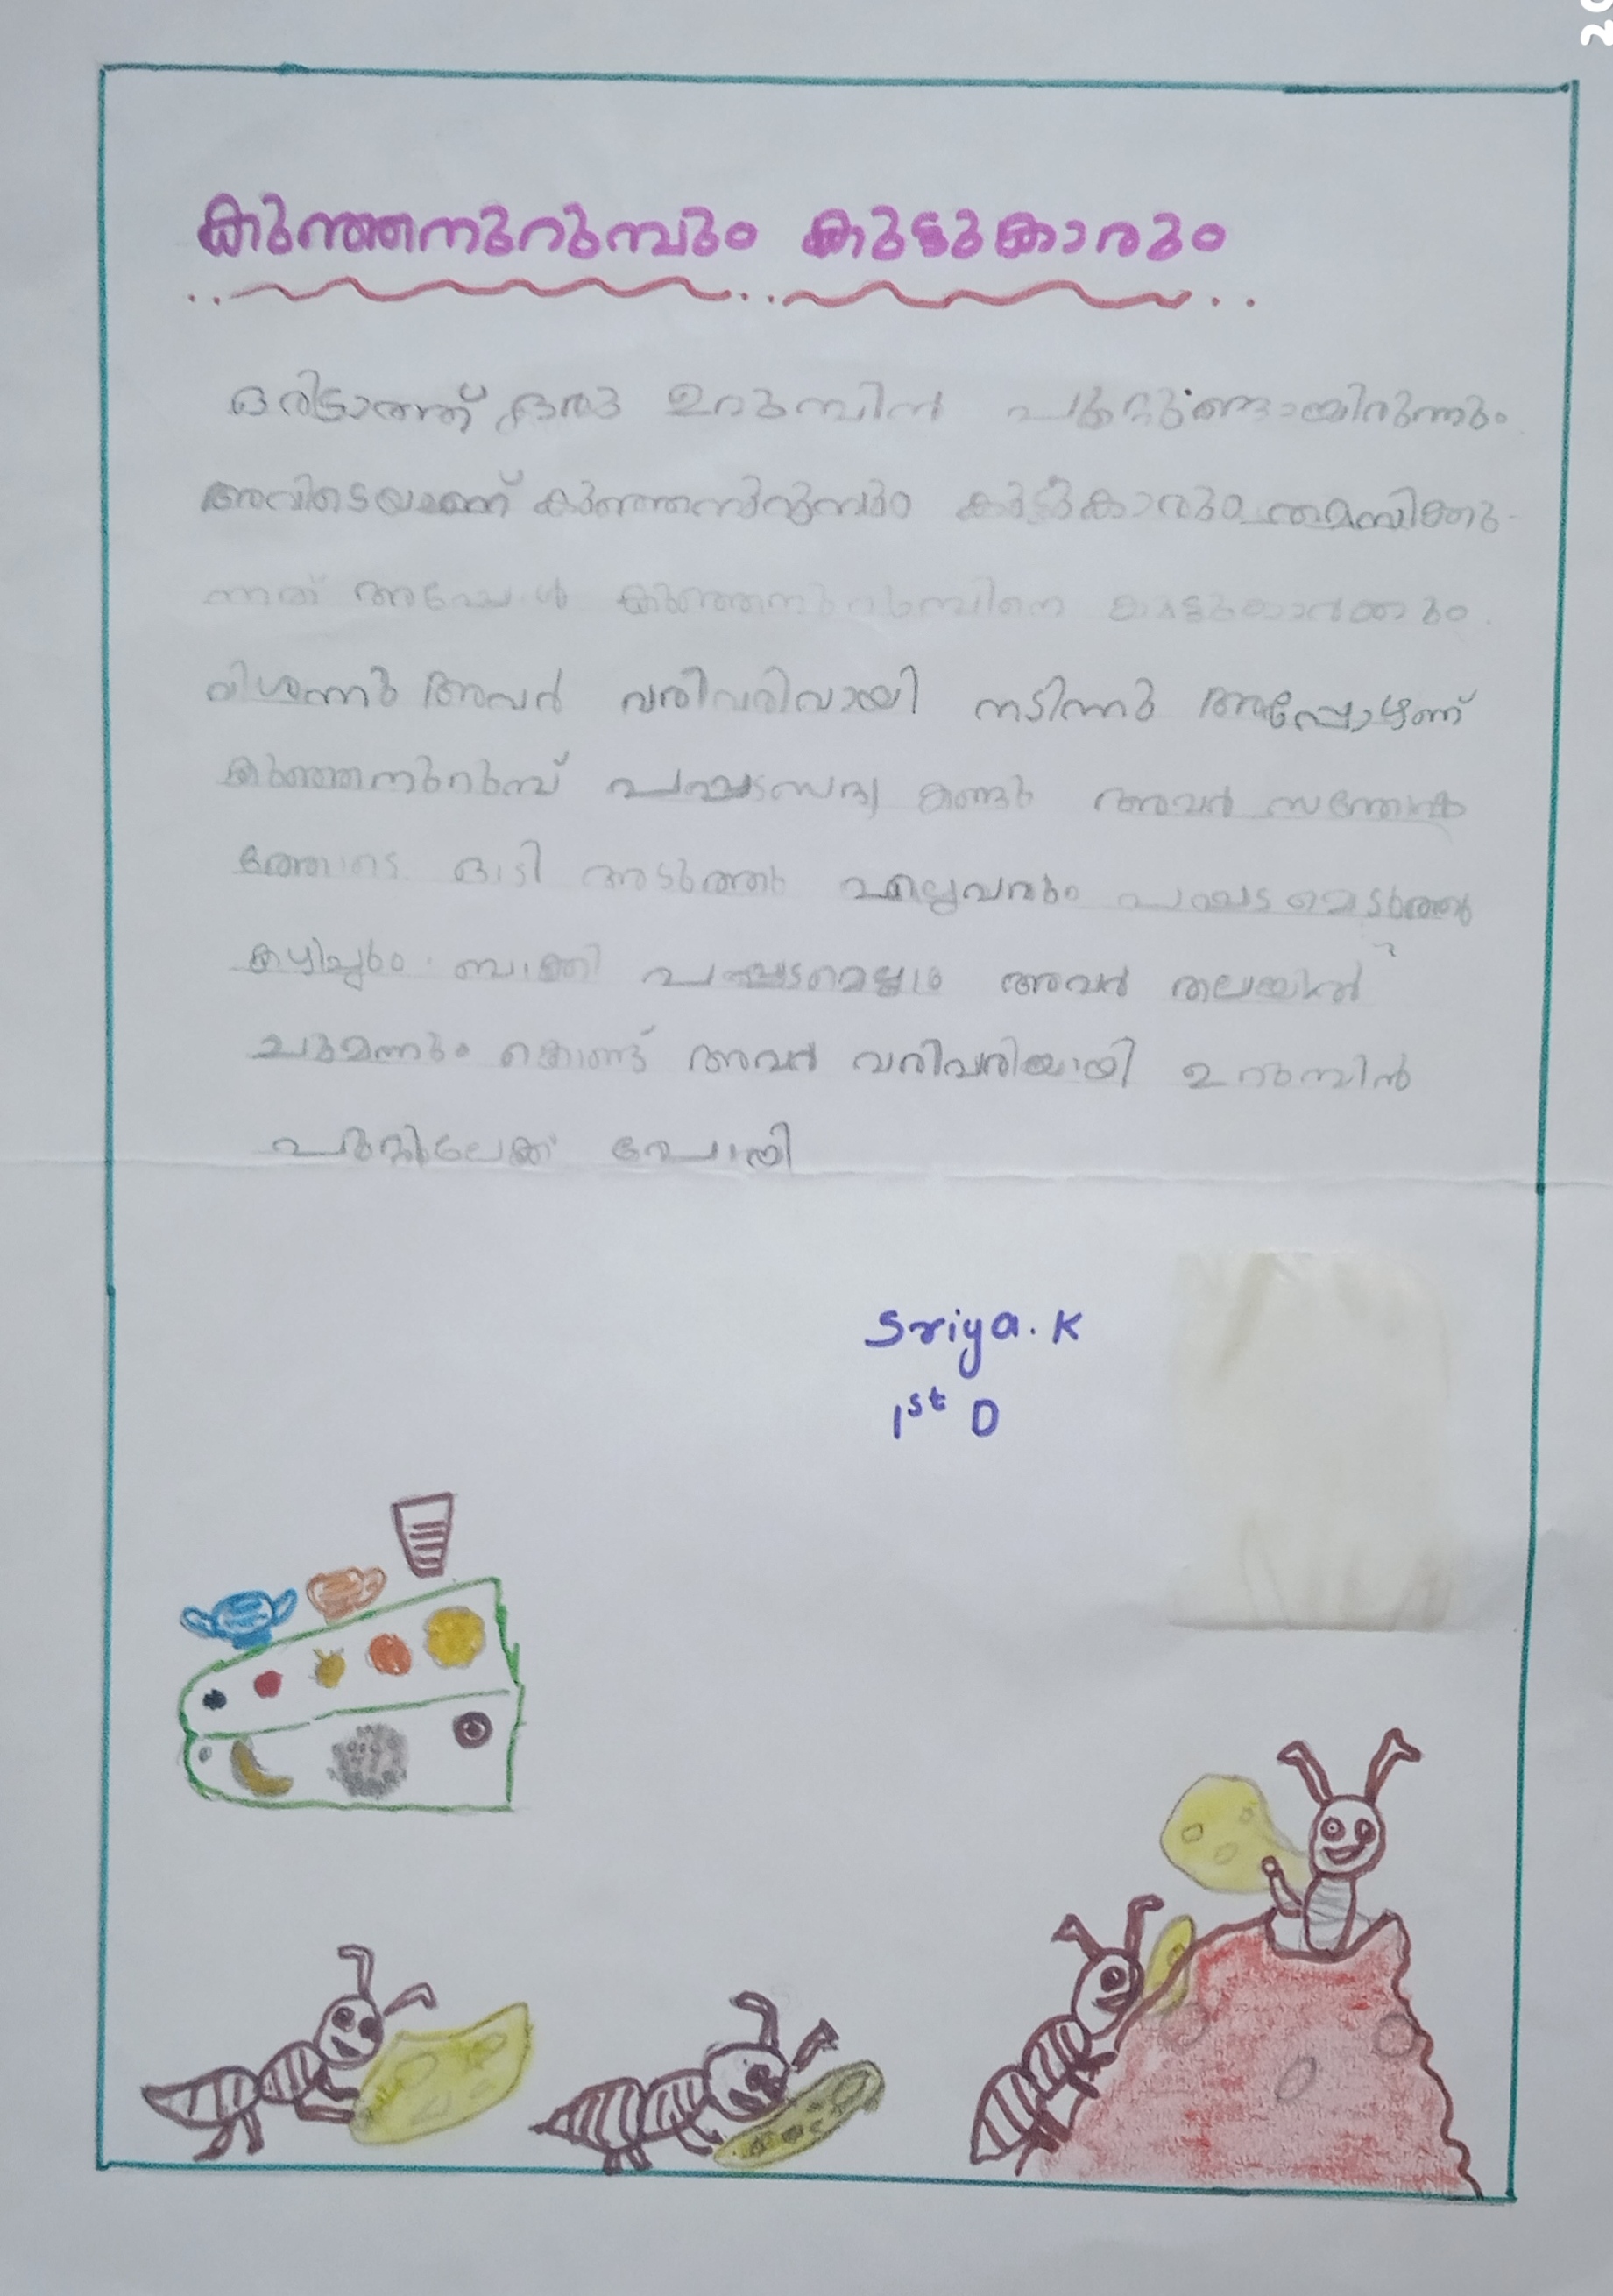 കുഞ്ഞനുറുമ്പും കുട്ടുകാരും
ഒരിട്ടാത്ത് ഒരു ഉറുമ്പിൻ പുറ്റുണ്ടായിരുന്നും
അവിടെയാണ് കുഞ്ഞനുറുമ്പും കുട്ടുകാരും തമസിക്കു-
ന്നത് അപ്പോൾ കുഞ്ഞനുറുമ്പിനെ കുട്ടുകാർക്കും
വിശന്നു അവർ വരിവരിവായി നടിന്നു അപ്പോഴണ്
കുഞ്ഞനുറുമ്പ് പപ്പടസദ്യ കണ്ടു അവർ സന്തോഷ
ത്തോടെ ഓടി അടുത്തു എല്ലവരും പപ്പടമെടുത്തു
കഴിച്ചും ബാക്കി പപ്പടമെല്ലാം അവർ തലയിൽ
ചുമന്നും കൊണ്ട് അവർ വരിവരിയായി ഉറുമ്പിൻ
പുറ്റിലേക്ക് പോയി
Sriya. K
1st D